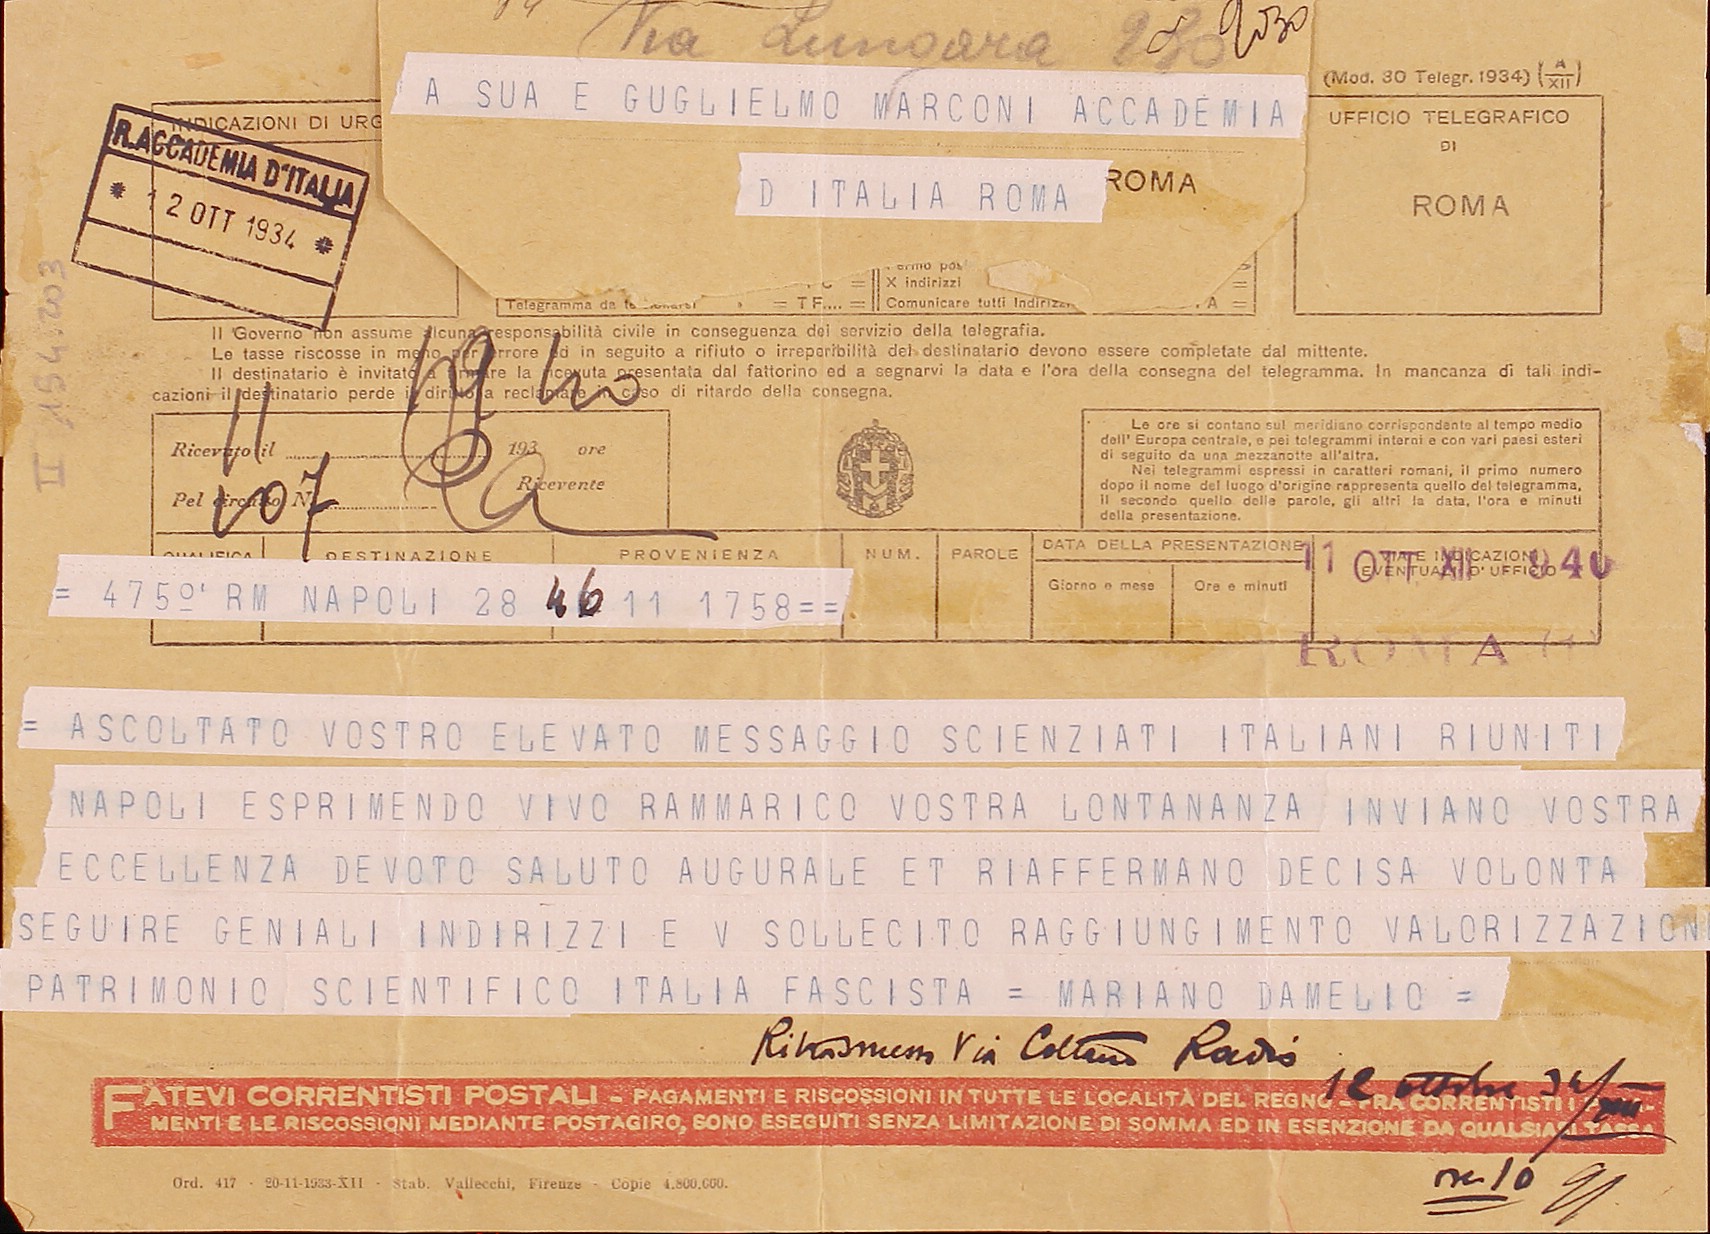 Via Lungara 230
2030
A SUA E GUGLIELMO MARCONI ACCADEMIA
D ITALIA ROMA
ROMA
(Mod. 30 Telegr. 1934) (A/XII)
UFFICIO TELEGRAFICO
DI
ROMA
INDICAZIONI DI URG
R. ACCADEMIA D'ITALIA
* 12 OTT 1934 *
II 154.203
X indirizzi
Telegramma da = TF.... = Comunicare tutti indirizz A =
Il Governo non assume alcuna responsabilità civile in conseguenza del servizio della telegrafia.
Le tasse riscosse in meno per errore ed in seguito a rifiuto o irreperibilità del destinatario devono essere completate dal mittente.
Il destinatario è invitato a firmare la ricevuta presentata dal fattorino ed a segnarvi la data e l'ora della consegna del telegramma. In mancanza di tali indi-
cazioni il destinatario perde il diritto a reclamare in caso di ritardo della consegna.
Ricevuto il 193 ore
Pel circuito N. Ricevente
11
107
Le ore si contano sul meridiano corrispondente al tempo medio
dell' Europa centrale, e pei telegrammi interni e con vari paesi esteri
di seguito da una mezzanotte all'altra.
Nei telegrammi espressi in caratteri romani, il primo numero
dopo il nome del luogo d'origine rappresenta quello del telegramma,
il secondo quello delle parole, gli altri la data, l'ora e minuti
della presentazione.
QUALIFICA DESTINAZIONE PROVENIENZA NUM. PAROLE DATA DELLA PRESENTAZIONE
Giorno e mese Ore e minuti
VIA E INDICAZIONI
EVENTUALI D'UFFICIO
11 OTT XII 940
ROMA
= 475º' RM NAPOLI 28 46 11 1758==
= ASCOLTATO VOSTRO ELEVATO MESSAGGIO SCIENZIATI ITALIANI RIUNITI
NAPOLI ESPRIMENDO VIVO RAMMARICO VOSTRA LONTANANZA INVIANO VOSTRA
ECCELLENZA DEVOTO SALUTO AUGURALE ET RIAFFERMANO DECISA VOLONTA
SEGUIRE GENIALI INDIRIZZI E V SOLLECITO RAGGIUNGIMENTO VALORIZZAZIONE
PATRIMONIO SCIENTIFICO ITALIA FASCISTA = MARIANO DAMELIO =
Ritrasmesso Via Coltano Radio
12 ottobre 34/XII
ore 10
FATEVI CORRENTISTI POSTALI - PAGAMENTI E RISCOSSIONI IN TUTTE LE LOCALITÀ DEL REGNO - FRA CORRENTISTI I PAGA-
MENTI E LE RISCOSSIONI MEDIANTE POSTAGIRO, SONO ESEGUITI SENZA LIMITAZIONE DI SOMMA ED IN ESENZIONE DA QUALSIASI TASSA
Ord. 417 - 20-11-1933-XII - Stab. Vallecchi, Firenze - Copie 4.800.000.